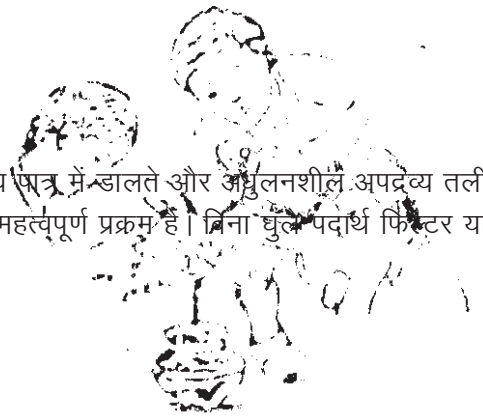 पात्र में डालते और अघुलनशील अपद्रव्य तली
महत्वपूर्ण प्रक्रम है। बिना घुले पदार्थ फिल्टर या